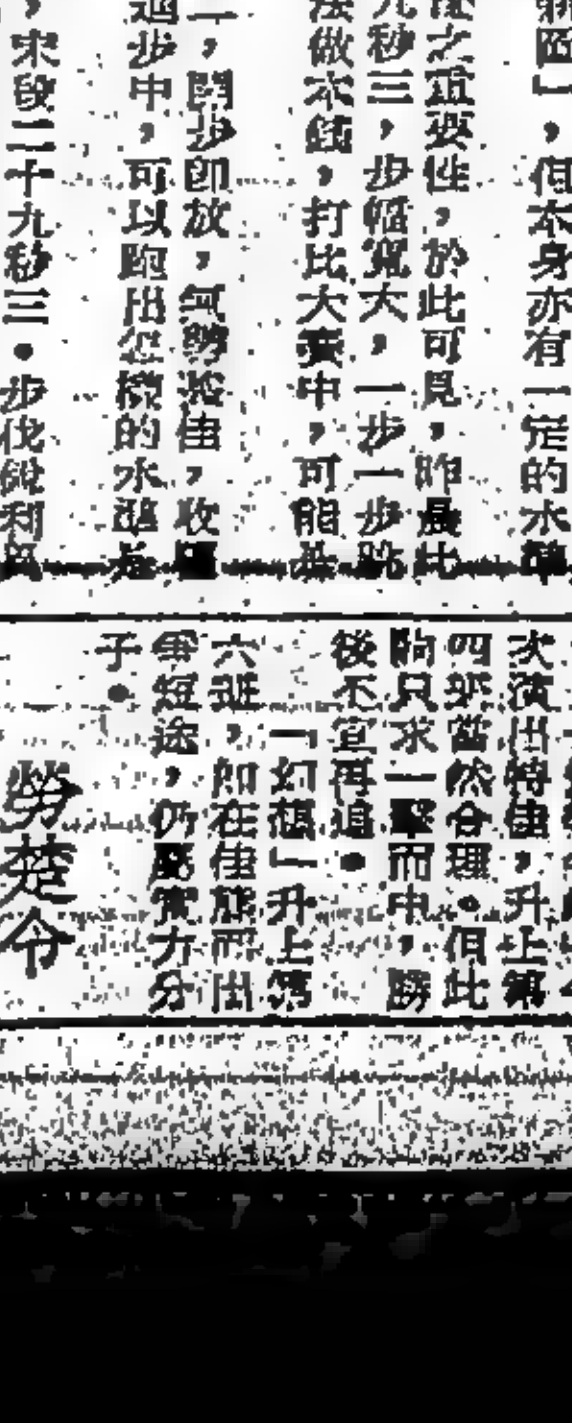 但本身亦有一定的水準
之重要性，於此可見，昨晨此
九秒三，步幅寬大，一步一步跑
做本錢，打比大賽中，可能
二，開步即放，氣勢
步中，可以跑出怎樣的水準
，末段二十九秒三。步伐銳利
次演出特佳，升上第
四班當然合理。但此
駒只求一擊而中，勝
後不宜再追。
「幻想」升上第
六班，如在佳態而出
爭短途，仍屬實力分
子。
勞楚令